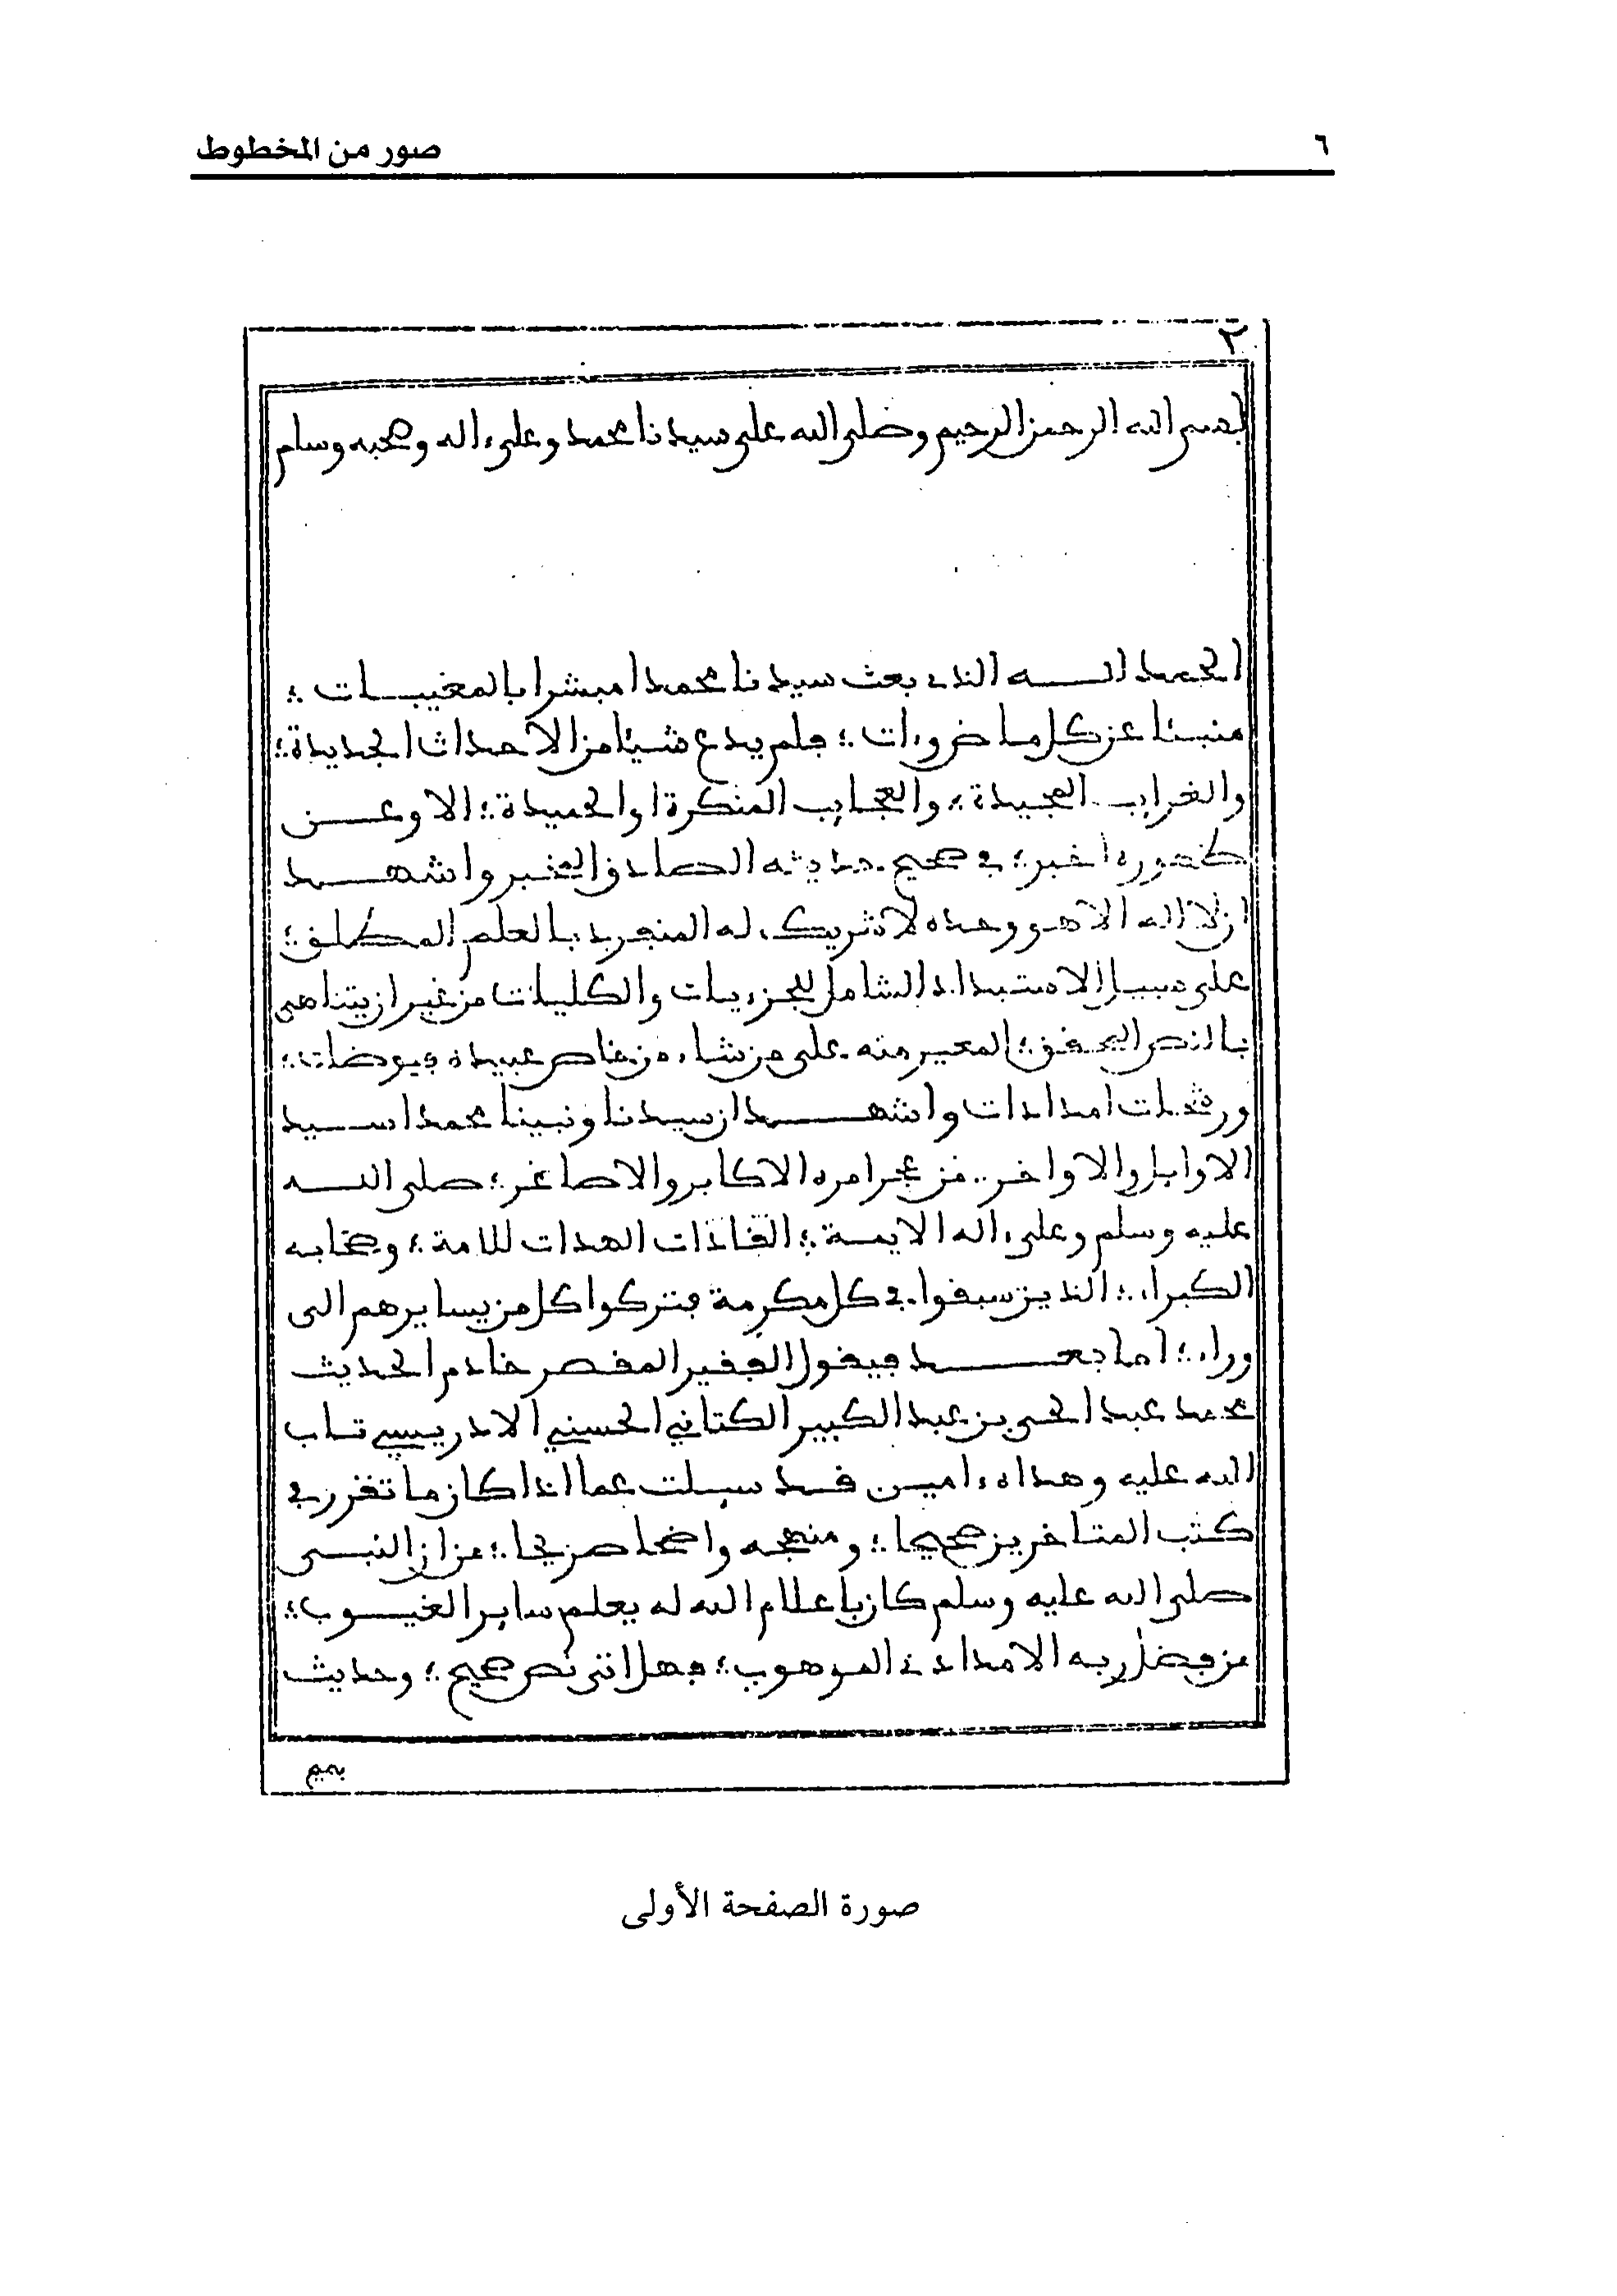 صور من المخطوط ٦
٢
بسم الله الرحمن الرحيم وصلى الله على سيدنا محمد وعلى ءاله وصحبه وسلم
الحمد لله الذى بعث سيدنا محمدا مبشرا بالمغيبات ؛
منبئا عن كل ماض وءات ؛ فلم يدع شيئا من الاحداث الجديدة ؛
والغرايب العجيدة ؛ والعجايب المنكرة او الحميدة ؛ الا وعن
ظهوره اخبر ؛ فى صحيح حديثه الصادق المخبر واشهد
ان لا اله الا هو وحده لا شريك له المنفرد بالعلم المطلق ؛
على سبيل الاستبداد الشامل للجزءيات والكليات من غير ان يتناهى
بالنص المحقق ؛ المفيض منه على من شاء من خاص عبيده فيوضات ؛
ورشحات امدادات واشهد ان سيدنا ونبينا محمدا سيد
الاوايل والاواخر .. من بحر امره الاكابر والاصاغر ؛ صلى الله
عليه وسلم وعلى ءاله الايمة ؛ القادات الهدات للامة ؛ وصحابه
الكبراء ؛ الذين سبقوا فى كل مكرمة فتركوا كل من يسايرهم الى
وراء ؛ اما بعد فيقول الفقير المقصر خادم الحديث
محمد عبد الحي بن عبد الكبير الكتاني الحسني الادريسي تاب
الله عليه وهداه ءامين قد سيلت عما اذا كان ما تقرر فى
كتب المتاخرين صحيحا ؛ ومنهجه واضحا صريحا ؛ من ان النبى
صلى الله عليه وسلم كان باعلام الله له يعلم ساير الغيوب ؛
من فضل ربه الامدادى الموهوب ؛ فهل اتى نص صحيح ؛ وحديث
صورة الصفحة الأولى